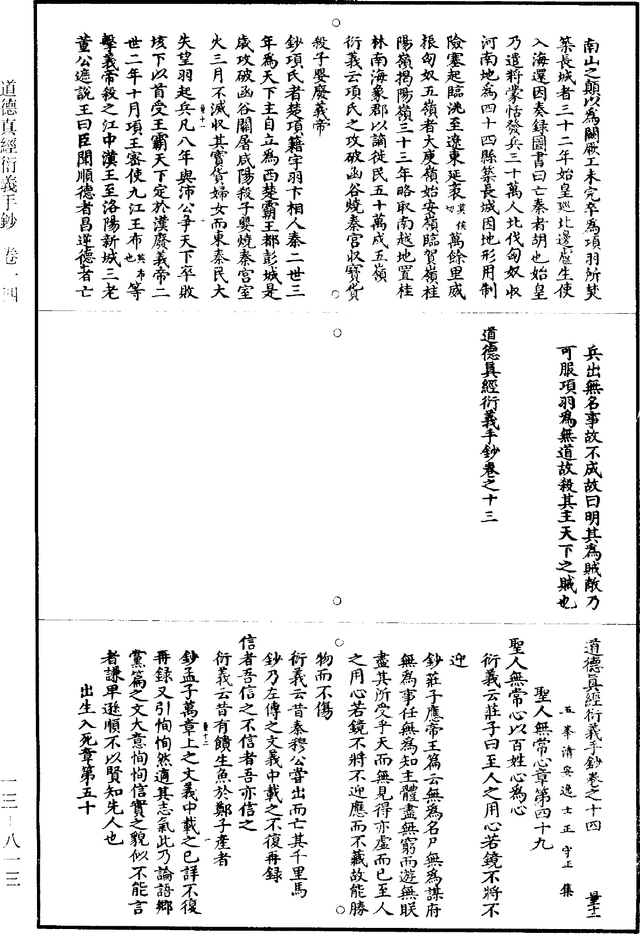 南山之顛以為闕厥工未完卒為項羽所焚
築長城者三十二年始皇巡北邊盧生使
入海還因奏錄圖書曰亡秦者胡也始皇
乃遣將蒙恬發兵三十萬人北伐匈奴収
河南地為四十四縣築長城因地形用制
險塞起臨洮至遼東延袤莫候切萬餘里威
振匈奴五嶺者大庾嶺始安嶺臨賀嶺桂
陽嶺揭陽嶺三十三年略取南越地置桂
林南海象郡以謫徙民五十萬戍五嶺
衍義云項氏之攻破函谷燒秦宮収寳貨
殺子嬰廢義帝
鈔項氏者楚項籍字羽下相人秦二世三
年為天下主自立為西楚霸王都彭城是
歲攻破函谷關屠咸陽殺子嬰燒秦宮室
火三月不滅収其寳貨婦女而東秦民大
失望羽起兵凡八年與沛公爭天下卒敗
垓下以首受王霸天下定於漢廢義帝二
世二年十月項王密使九江王布英布也等
擊義帝殺之江中漢王至洛陽新城三老
董公遮說王曰臣聞順德者昌逆德者亡
兵出無名事故不成故曰明其為賊敵乃
可服項羽為無道故殺其主天下之賊也
道德真經衍義手鈔卷之十三
道德真經衍義手鈔卷之十四 量十二
五峯清安逸士王守正集
聖人無常心章第四十九
聖人無常心以百姓心為心
衍義云莊子曰至人之用心若鏡不將不
迎
鈔莊子應帝王篇云無為名尸無為謀府
無為事任無為知主體盡無窮而遊無朕
盡其所受乎天而無見得亦虛而已至人
之用心若鏡不將不迎應而不藏故能勝
物而不傷
衍義云昔秦穆公嘗出而亡其千里馬
鈔乃左傳之文義中載之不復再錄
信者吾信之不信者吾亦信之
衍義云昔有饋生魚於鄭子產者
鈔孟子萬章上之文義中載之已詳不復
再錄又引恂恂然適其志氣此乃論語鄉
黨篇之文大意恂恂信實之貌似不能言
者謙卑遜順不以賢知先人也
出生入死章第五十
道德真經衍義手鈔 卷一四
一三-八一三